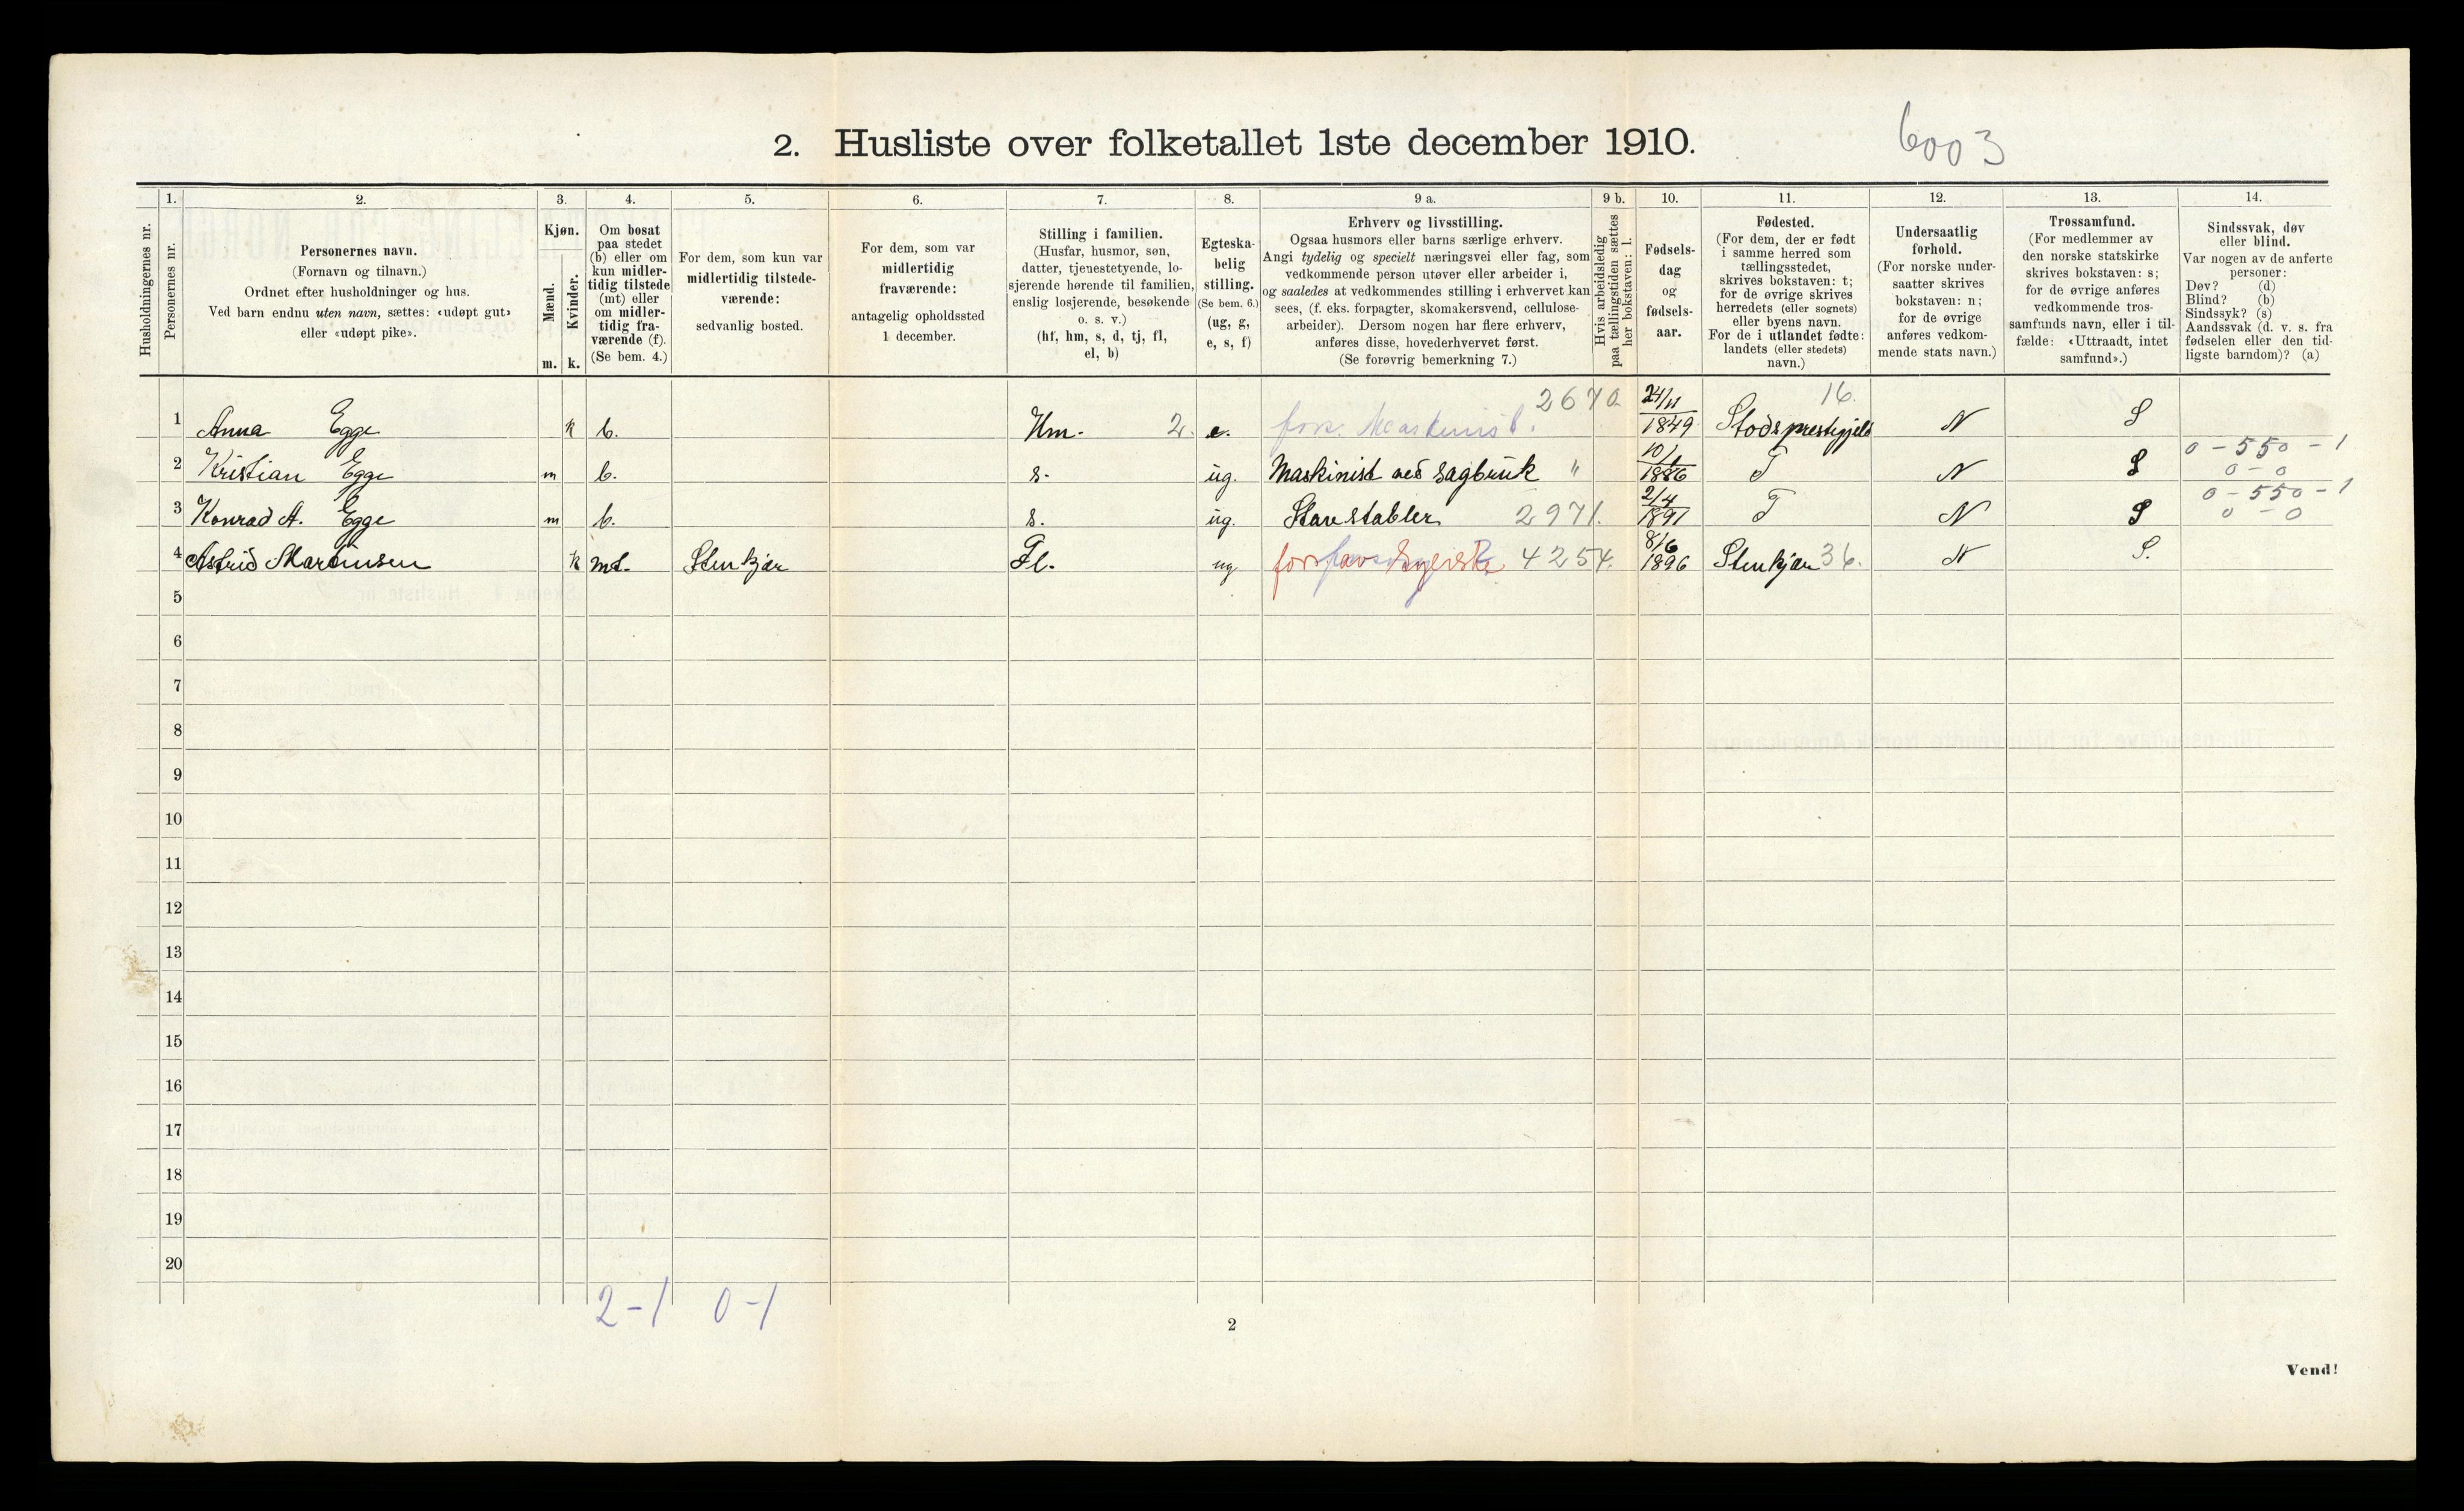 2. Husliste over folketallet 1ste december 1910.
6003
Husholdningernes nr.
1.
Personernes nr.
2.
Personernes navn.
(Fornavn og tilnavn.)
Ordnet efter husholdninger og hus.
Ved barn endnu uten navn, sættes: «udøpt gut»
eller «udøpt pike».
3.
Kjøn.
Mænd.
Kvinder.
m. k.
4.
Om bosat
paa stedet
(b) eller om
kun midler-
tidig tilstede
(mt) eller
om midler-
tidig fra-
værende (f).
(Se bem. 4.)
5.
For dem, som kun var
midlertidig tilstede-
værende:
sedvanlig bosted.
6.
For dem, som var
midlertidig
fraværende:
antagelig opholdssted
1 december.
7.
Stilling i familien.
(Husfar, husmor, søn,
datter, tjenestetyende, lo-
sjerende hørende til familien,
enslig losjerende, besøkende
o. s. v.)
(hf, hm, s, d, tj, fl,
el, b)
8.
Egteska-
belig
stilling.
(Se bem. 6.)
(ug, g,
e, s, f)
9 a.
Erhverv og livsstilling.
Ogsaa husmors eller barns særlige erhverv.
Angi tydelig og specielt næringsvei eller fag, som
vedkommende person utøver eller arbeider i,
og saaledes at vedkommendes stilling i erhvervet kan
sees, (f. eks. forpagter, skomakersvend, cellulose-
arbeider). Dersom nogen har flere erhverv,
anføres disse, hovederhvervet først.
(Se forøvrig bemerkning 7.)
9 b.
Hvis arbeidsledig
paa tællingstiden sættes
her bokstaven: l.
10.
Fødsels-
dag
og
fødsels-
aar.
11.
Fødested.
(For dem, der er født
i samme herred som
tællingsstedet,
skrives bokstaven: t;
for de øvrige skrives
herredets (eller sognets)
eller byens navn.
For de i utlandet fødte:
landets (eller stedets)
navn.)
12.
Undersaatlig
forhold.
(For norske under-
saatter skrives
bokstaven: n;
for de øvrige
anføres vedkom-
mende stats navn.)
13.
Trossamfund.
(For medlemmer av
den norske statskirke
skrives bokstaven: s;
for de øvrige anføres
vedkommende tros-
samfunds navn, eller i til-
fælde: «Uttraadt, intet
samfund».)
14.
Sindssvak, døv
eller blind.
Var nogen av de anførte
personer:
Døv? (d)
Blind? (b)
Sindssyk? (s)
Aandssvak (d. v. s. fra
fødselen eller den tid-
ligste barndom)? (a)
2670 24/11 16.
1 Anna Egge k b. Hm. 2. e. fors. Maskinist. 1849 Stods prestegjeld N S
0-550-1
2 Kristian Egge m b. s. ug. Maskinist ved sagbruk " 10/1 1886 T N S 0-0
0-550-1
3 Konrad A. Egge m b. s. ug. Stavstabler 2971. 2/4 1891 T N S 0-0
4 Astrid Martinsen k mt. Stenkjær Fl. ug 4254. 8/6 1896 Stenkjær 36. N S.
5
6
7
8
9
10
11
12
13
14
15
16
17
18
19
20
2-1 0-1
2
Vend!